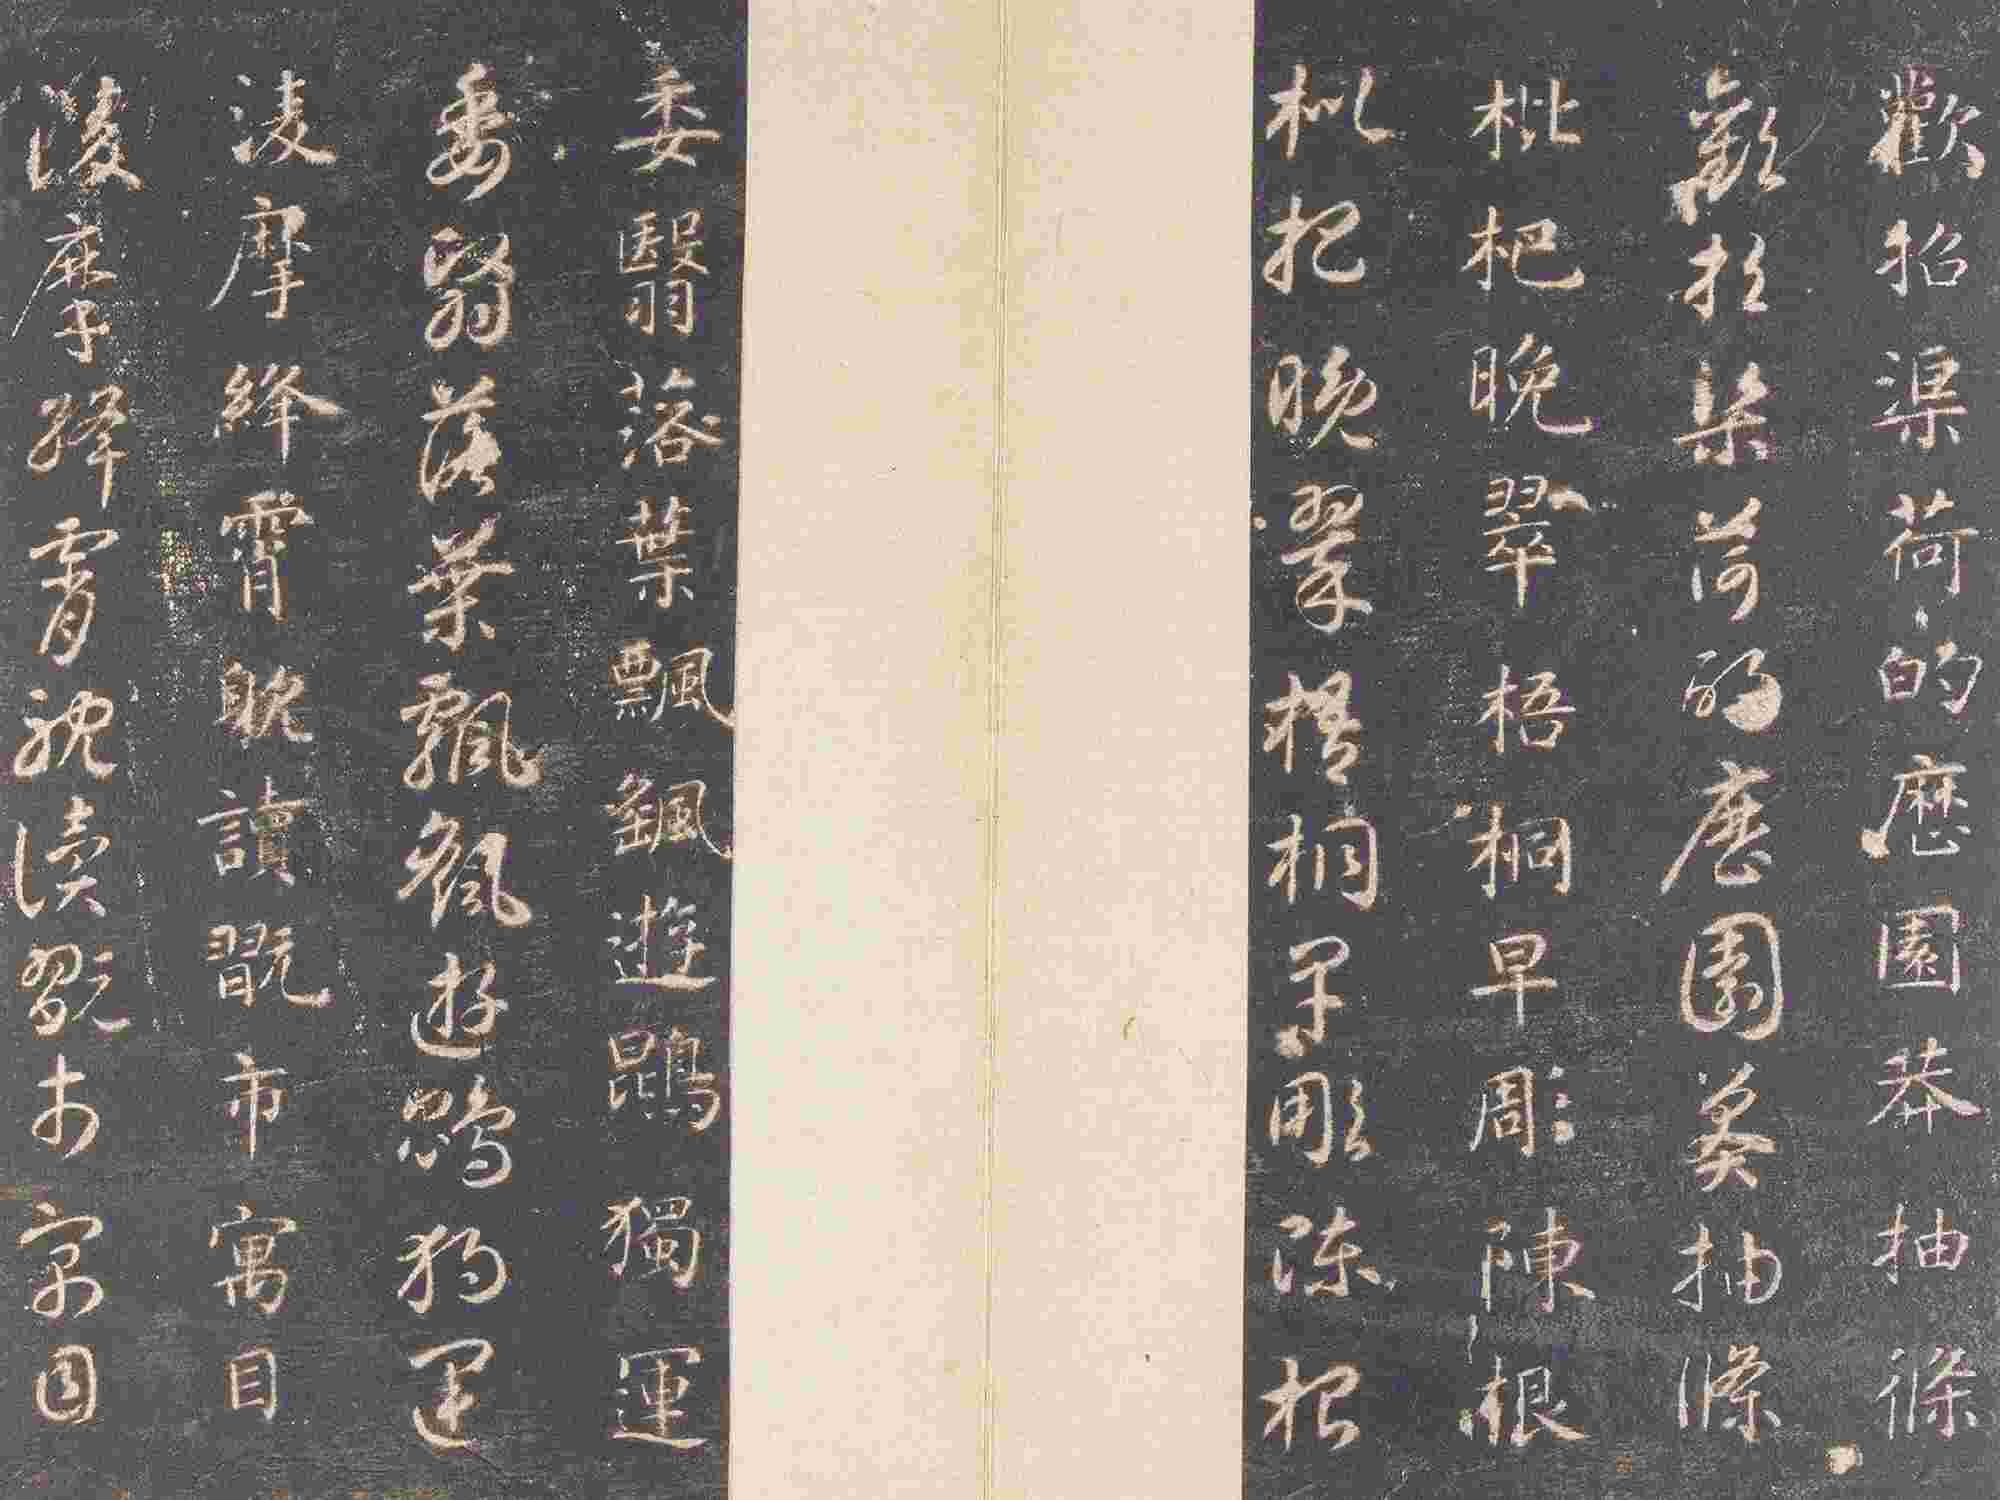 歡招渠荷的歷園莽抽條
歡招渠荷的歷園莽抽條
枇杷晚翠梧桐早彫陳根
枇杷晚翠梧桐早彫陳根
委翳落葉飄颻遊鵾獨運
委翳落葉飄颻遊鵾獨運
凌摩絳霄耽讀翫市寓目
凌摩絳霄耽讀翫市寓目